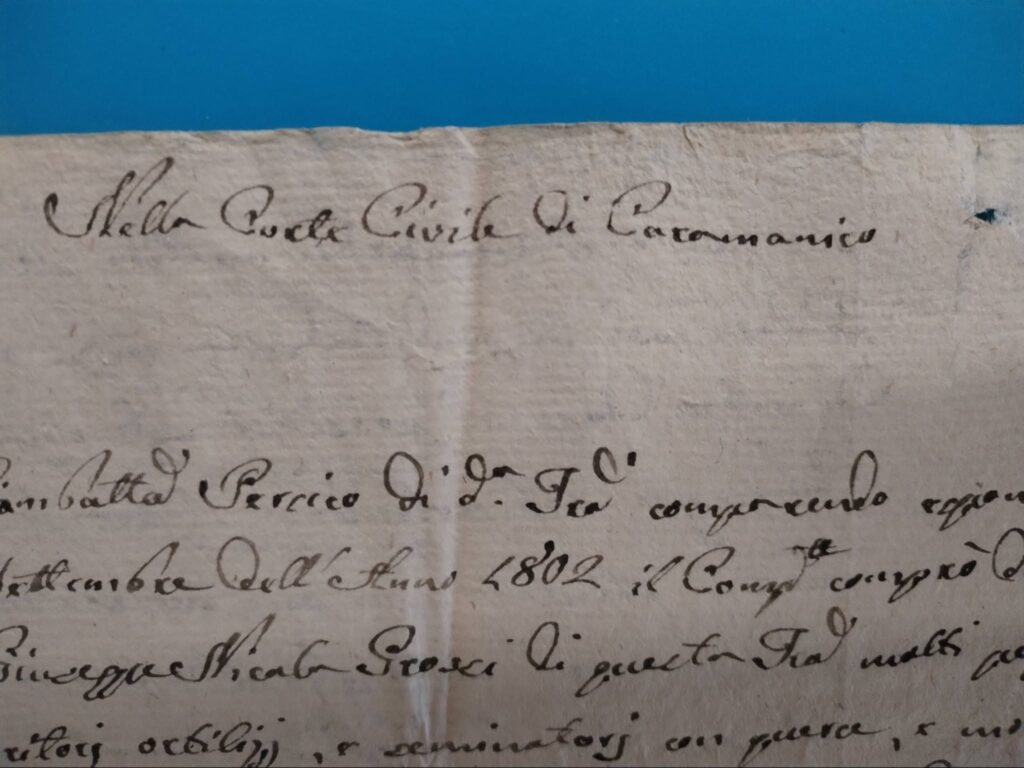 Nella Corte Civile di Caramanico
iambattã Persico di d.ª Trã comparendo espon
Settembre dell'Anno 1802 il Comp.te comprò d
Giuseppe Nicola Grossi di questa Trã molti pe
ritorj ortilizj, e seminatorj con querce, e mo